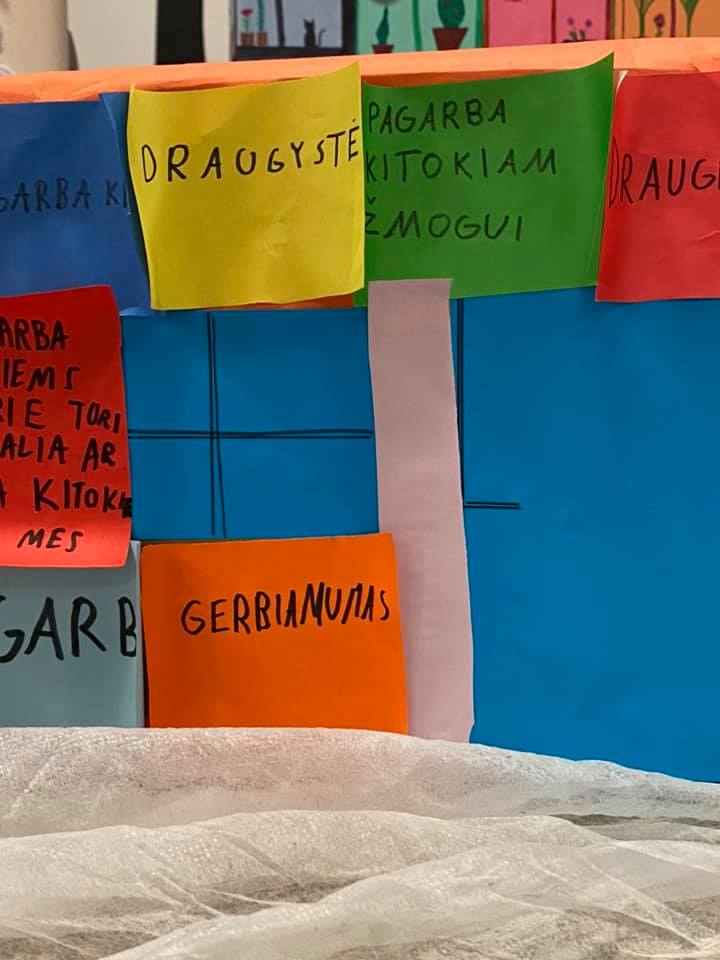 GARBA KI
DRAUGYSTĖ
PAGARBA
KITOKIAM
ŽMOGUI
DRAUG
ARBA
IEMS
RIE TURI
ALIA AR
A KITOKE
MES
GARB
GERBIANUMAS